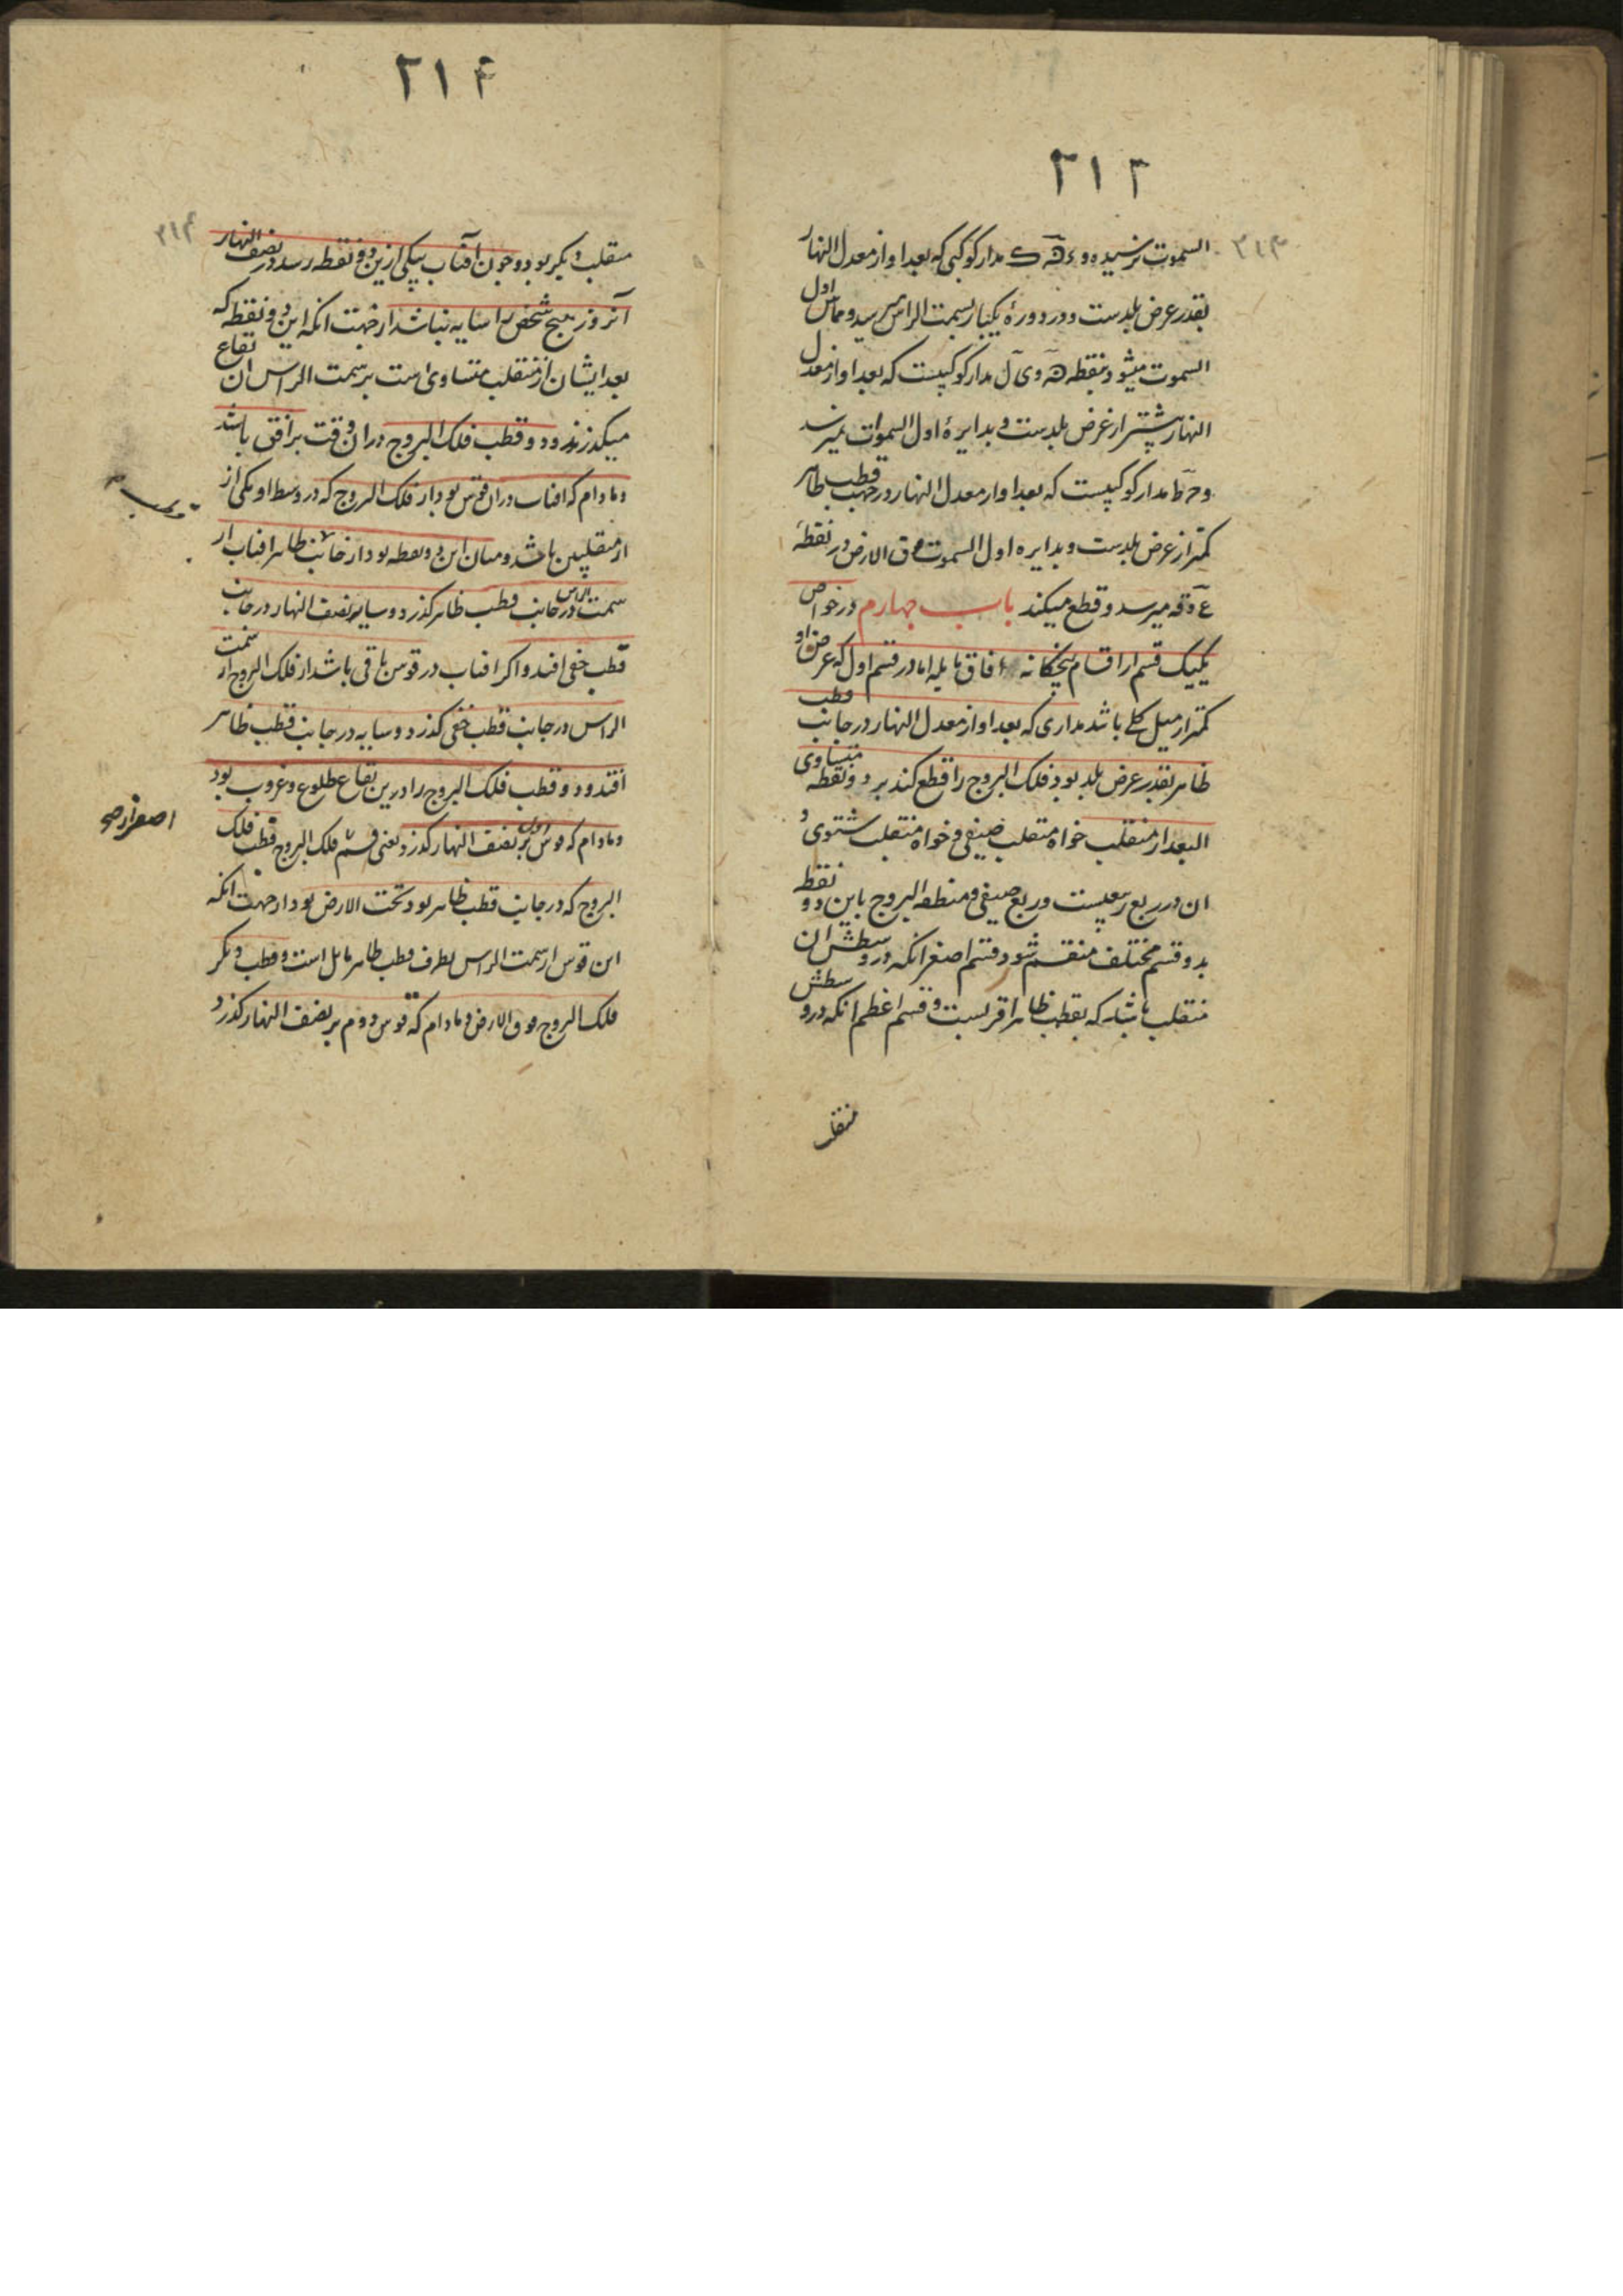 ۳۱۳
۳۱۳
السموت نرسیده و ءهٓ ک مدار کوکبی که بعد او از معدل النهار
بقدر عرض بلدست و در دورهٔ یکبار بسمت الراس میرسد و مماس اول
السموت میشود بنقطه هٓ و یٓ لٓ مدار کوکبیست که بعد او از معدل
النهار بیشتر از عرض بلدست و بدایرهٔ اول السموات نمیرسد
و حٓ طٓ مدار کوکبیست که بعد او از معدل النهار در جهت قطب ظاهر
کمتر از عرض بلدست و بدایره اول السموت فوق الارض در نقطهٔ
میرسد و قطع میکند باب چهارم در خواص
یکیک قسم از اقسام پنجکانه آفاق مایله اما در قسم اول که عرض او
کمتر از میل کلی باشد مداری که بعد او از معدل النهار در جانب قطب
ظاهر بقدر عرض بلد بود فلک البروج را قطع کند بر دو نقطه متساوی
البعد از منقلب خواه منقلب صیفی و خواه منقلب شتوی و
ان در ربع ربیعیست و ربع صیفی و منطقه البروج باین دو نقطه
بدو قسم مختلف منقسم شود قسم اصغر انکه در وسطش ان
منقلب باشد که بقطب ظاهر اقربست و قسم اعظم انکه در وسطش
منقلب
۳۱۴
۳۱۴
منقلب دیکر بود و چون آفتاب بیکی ازین دو نقطه رسد در نصف النهار
آنروز هیچ شخص را سایه نباشد از جهت انکه این دو نقطه که
بعد ایشان از منقلب متساوی است بر سمت الراس ان بقاع
میکذرند و دو قطب فلک البروج در ان وقت بر افق باشد
و مادام که افتاب در ان قوس بود از فلک البروج که در وسط او یکی از
از منقلبین باشد و میان این دو نقطه بود از جانب ظاهر افتاب از
سمت الراس در جانب قطب ظاهر کذرد و سایه نصف النهار در جانب
قطب خفی افتد و اکر افتاب در قوس باقی باشد از فلک البروج از سمت
الراس در جانب قطب خفی کذرد و سایه در جانب قطب ظاهر
افتد و دو قطب فلک البروج را درین بقاع طلوع و غروب بود
و مادام که قوس اول بر نصف النهار کذرد یعنی قسم فلک البروج قطب فلک
اصغر از صح
البروج که در جانب قطب ظاهر بود تحت الارض بود از جهت انکه
این قوس از سمت الراس بطرف قطب ظاهر مایل است و قطب دیکر
فلک البروج فوق الارض و مادام که قوس دوم بر نصف النهار کذرد